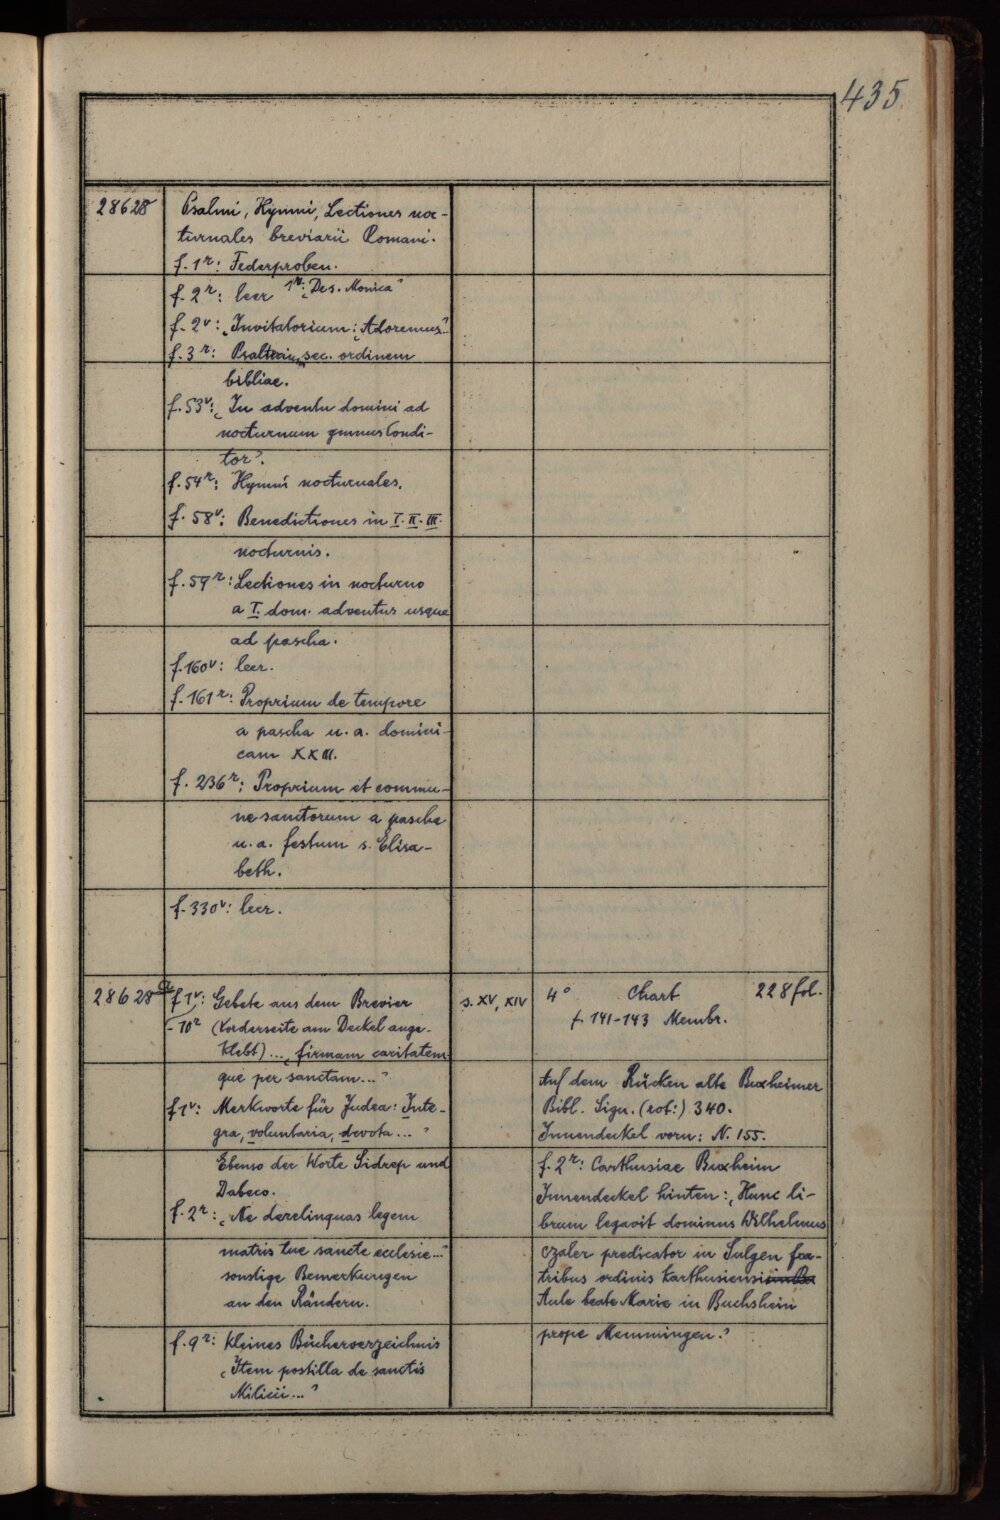 435
28628 Psalmi, Hymni, Lectiones noc-
turnales breviarii Romani.
f. 1r: Federproben.
f. 2r: leer 1v: „De s. Monica“
f. 2v: „Invitatorium: „Adoremus“
f. 3r: Psalterium sec. ordinem
bibliae.
f. 53v: „In adventu domini ad
nocturnum Condi-
tor“.
f. 54r: Hymni nocturnales.
f. 58v: Benedictiones in I. II. III.
nocturnis.
f. 59r: Lectiones in nocturno
a I. dom. adventus usque
ad pascha.
f. 160v: leer.
f. 161r: Proprium de tempore
a pascha u. a. domini-
cam XXIII.
f. 236r: Proprium et commu-
ne sanctorum a pascha
u. a. festum s. Elisa-
beth.
f. 330v: leer.
28628a f 1v: Gebete aus dem Brevier
- 10r (Vorderseite am Deckel ange-
klebt) ... „firmam caritatem
que per sanctam...“
f 1v: Merkworte für Judea: Inte-
gra, voluntaria, devota..."
Ebenso der Worte Sidrep und
Dabeco.
f. 2r: „Ne derelinquas legem
matris tue sancte ecclesie...“
sonstige Bemerkungen
an den Rändern.
f. 9r: Kleines Bücherverzeichnis
„Item postilla de sanctis
Milicii...“
s. XV, XIV
4° Chart 228 fol.
f. 141-143 Membr.
Auf dem Rücken alte Buxheimer
Bibl. Sign. (rot:) 340.
Innendeckel vorn: N. 155.
f. 2r: Carthusiae Buxheim
Innendeckel hinten: „Hunc li-
brum legavit dominus Wilhelmus
czaler predicator in Sulgen fra-
tribus ordinis Karthusiensi in Bu
Aule beate Marie in Buchshein
prope Memmingen.“